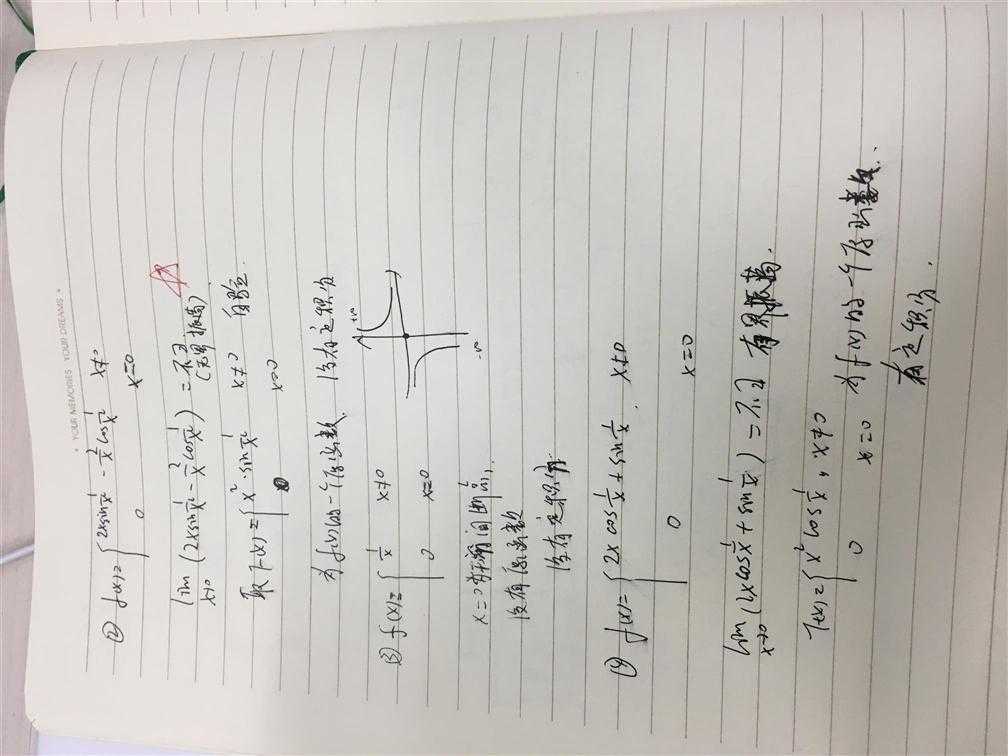 * YOUR MEMORIES YOUR DREAMS *
② f(x)={ 2x sin 1/x² - 2/x cos 1/x² x≠0
0 x=0
lim x→0 (2x sin 1/x² - 2/x cos 1/x²) = 不∃
(无界振荡)
取 F(x)={ x² · sin 1/x² x≠0 自验
0 x=0
为f(x)的一个原函数 没有定积分
③ f(x)={ 1/x x≠0
0 x=0
+∞
-∞
x=0 无穷间断
没有原函数
没有定积分
④ f(x)={ 2x cos 1/x + sin 1/x , x≠0
0 x=0
lim x→0 (2x cos 1/x + sin 1/x) = 不∃ 有界振荡.
F(x)={ x² cos 1/x , x≠0
0 x=0 为f(x)的一个原函数.
有定积分.